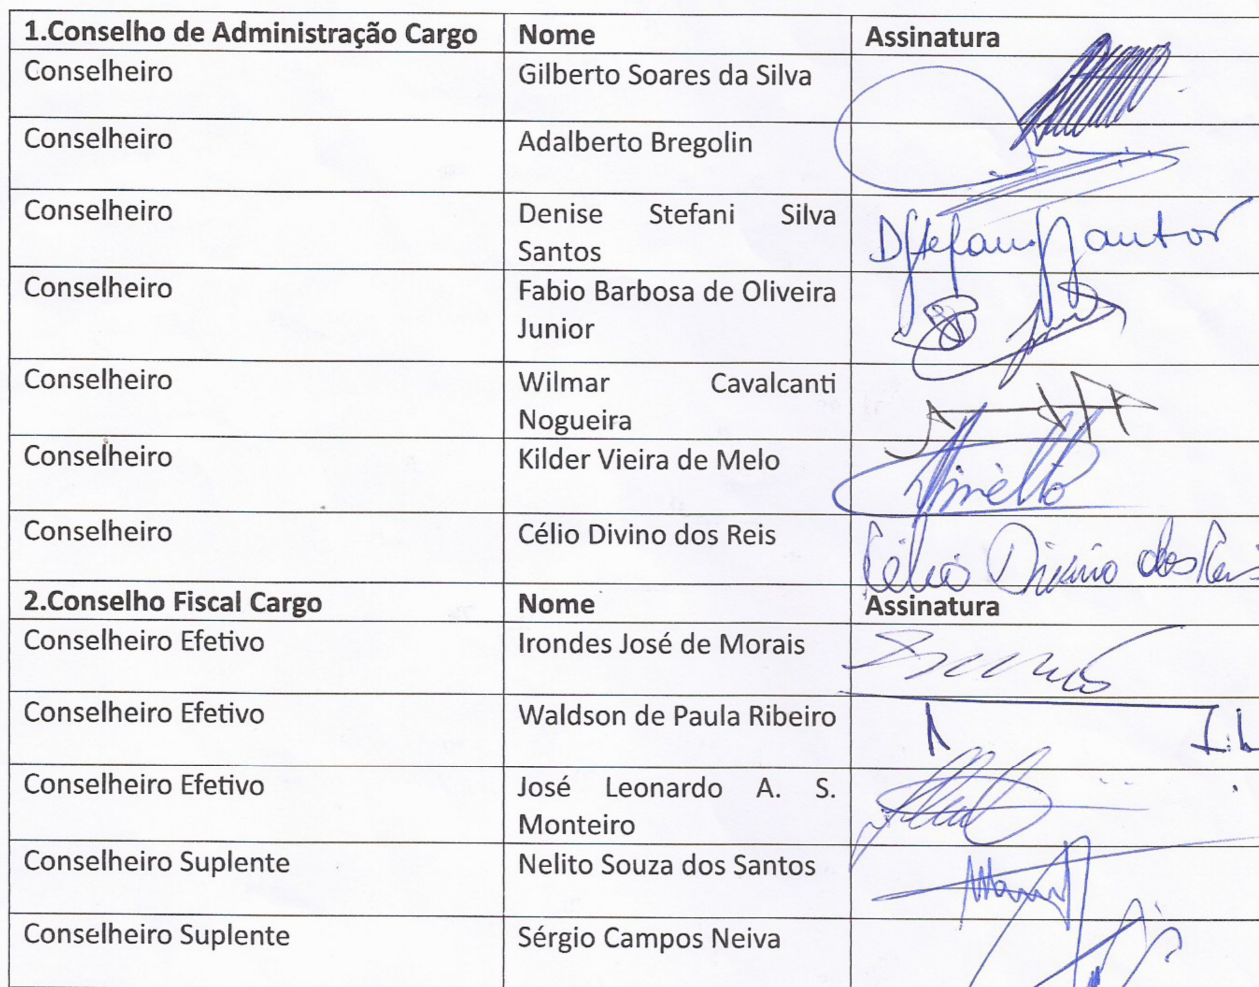 1.Conselho de Administração Cargo Nome Assinatura
Conselheiro Gilberto Soares da Silva
Conselheiro Adalberto Bregolin
Conselheiro Denise Stefani Silva
Santos
Conselheiro Fabio Barbosa de Oliveira
Junior
Conselheiro Wilmar Cavalcanti
Nogueira
Conselheiro Kilder Vieira de Melo
Conselheiro Célio Divino dos Reis Célio Divino dos Reis
2.Conselho Fiscal Cargo Nome Assinatura
Conselheiro Efetivo Irondes José de Morais
Conselheiro Efetivo Waldson de Paula Ribeiro
Conselheiro Efetivo José Leonardo A. S.
Monteiro
Conselheiro Suplente Nelito Souza dos Santos
Conselheiro Suplente Sérgio Campos Neiva